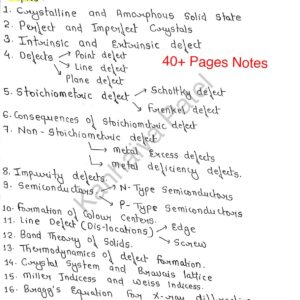 1. Crystalline and Amorphous Solid state
2. Perfect and Imperfect Crystals
3. Intrinsic and Extrinsic defect
4. Defects → Point defect
→ Line defect
→ Plane defect
40+ Pages Notes
5. Stoichiometric defect → Schottky defect
→ Frenkel defect
6. Consequences of Stoichiometric defect
7. Non-Stoichiometric defect
→ metal Excess defects
→ metal deficiency defects.
8. Impurity defects.
9. Semiconductors → N-Type Semiconductors
→ P-Type Semiconductors
10. Formation of Colour Centers.
11. Line Defect (Dis-locations) → Edge
→ Screw
12. Band Theory of Solids.
13. Thermodynamics of defect Formation.
14. Crystal System and Bravais lattice
15. Miller Indicess and Weiss Indicess.
16. Bragg's Equation For X-ray